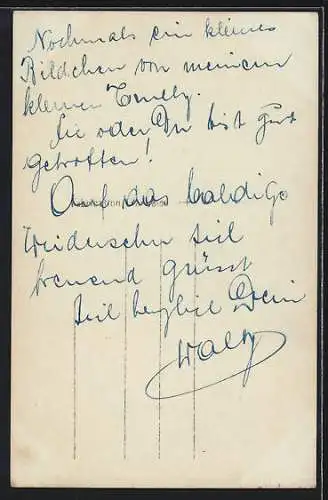 Nochmals ein kleines
Bildchen von meinem
kleinen
Sie oder Du bist gut
getroffen!
Auf das baldige
Wiedersehn sich
freuend grüsst
Dein